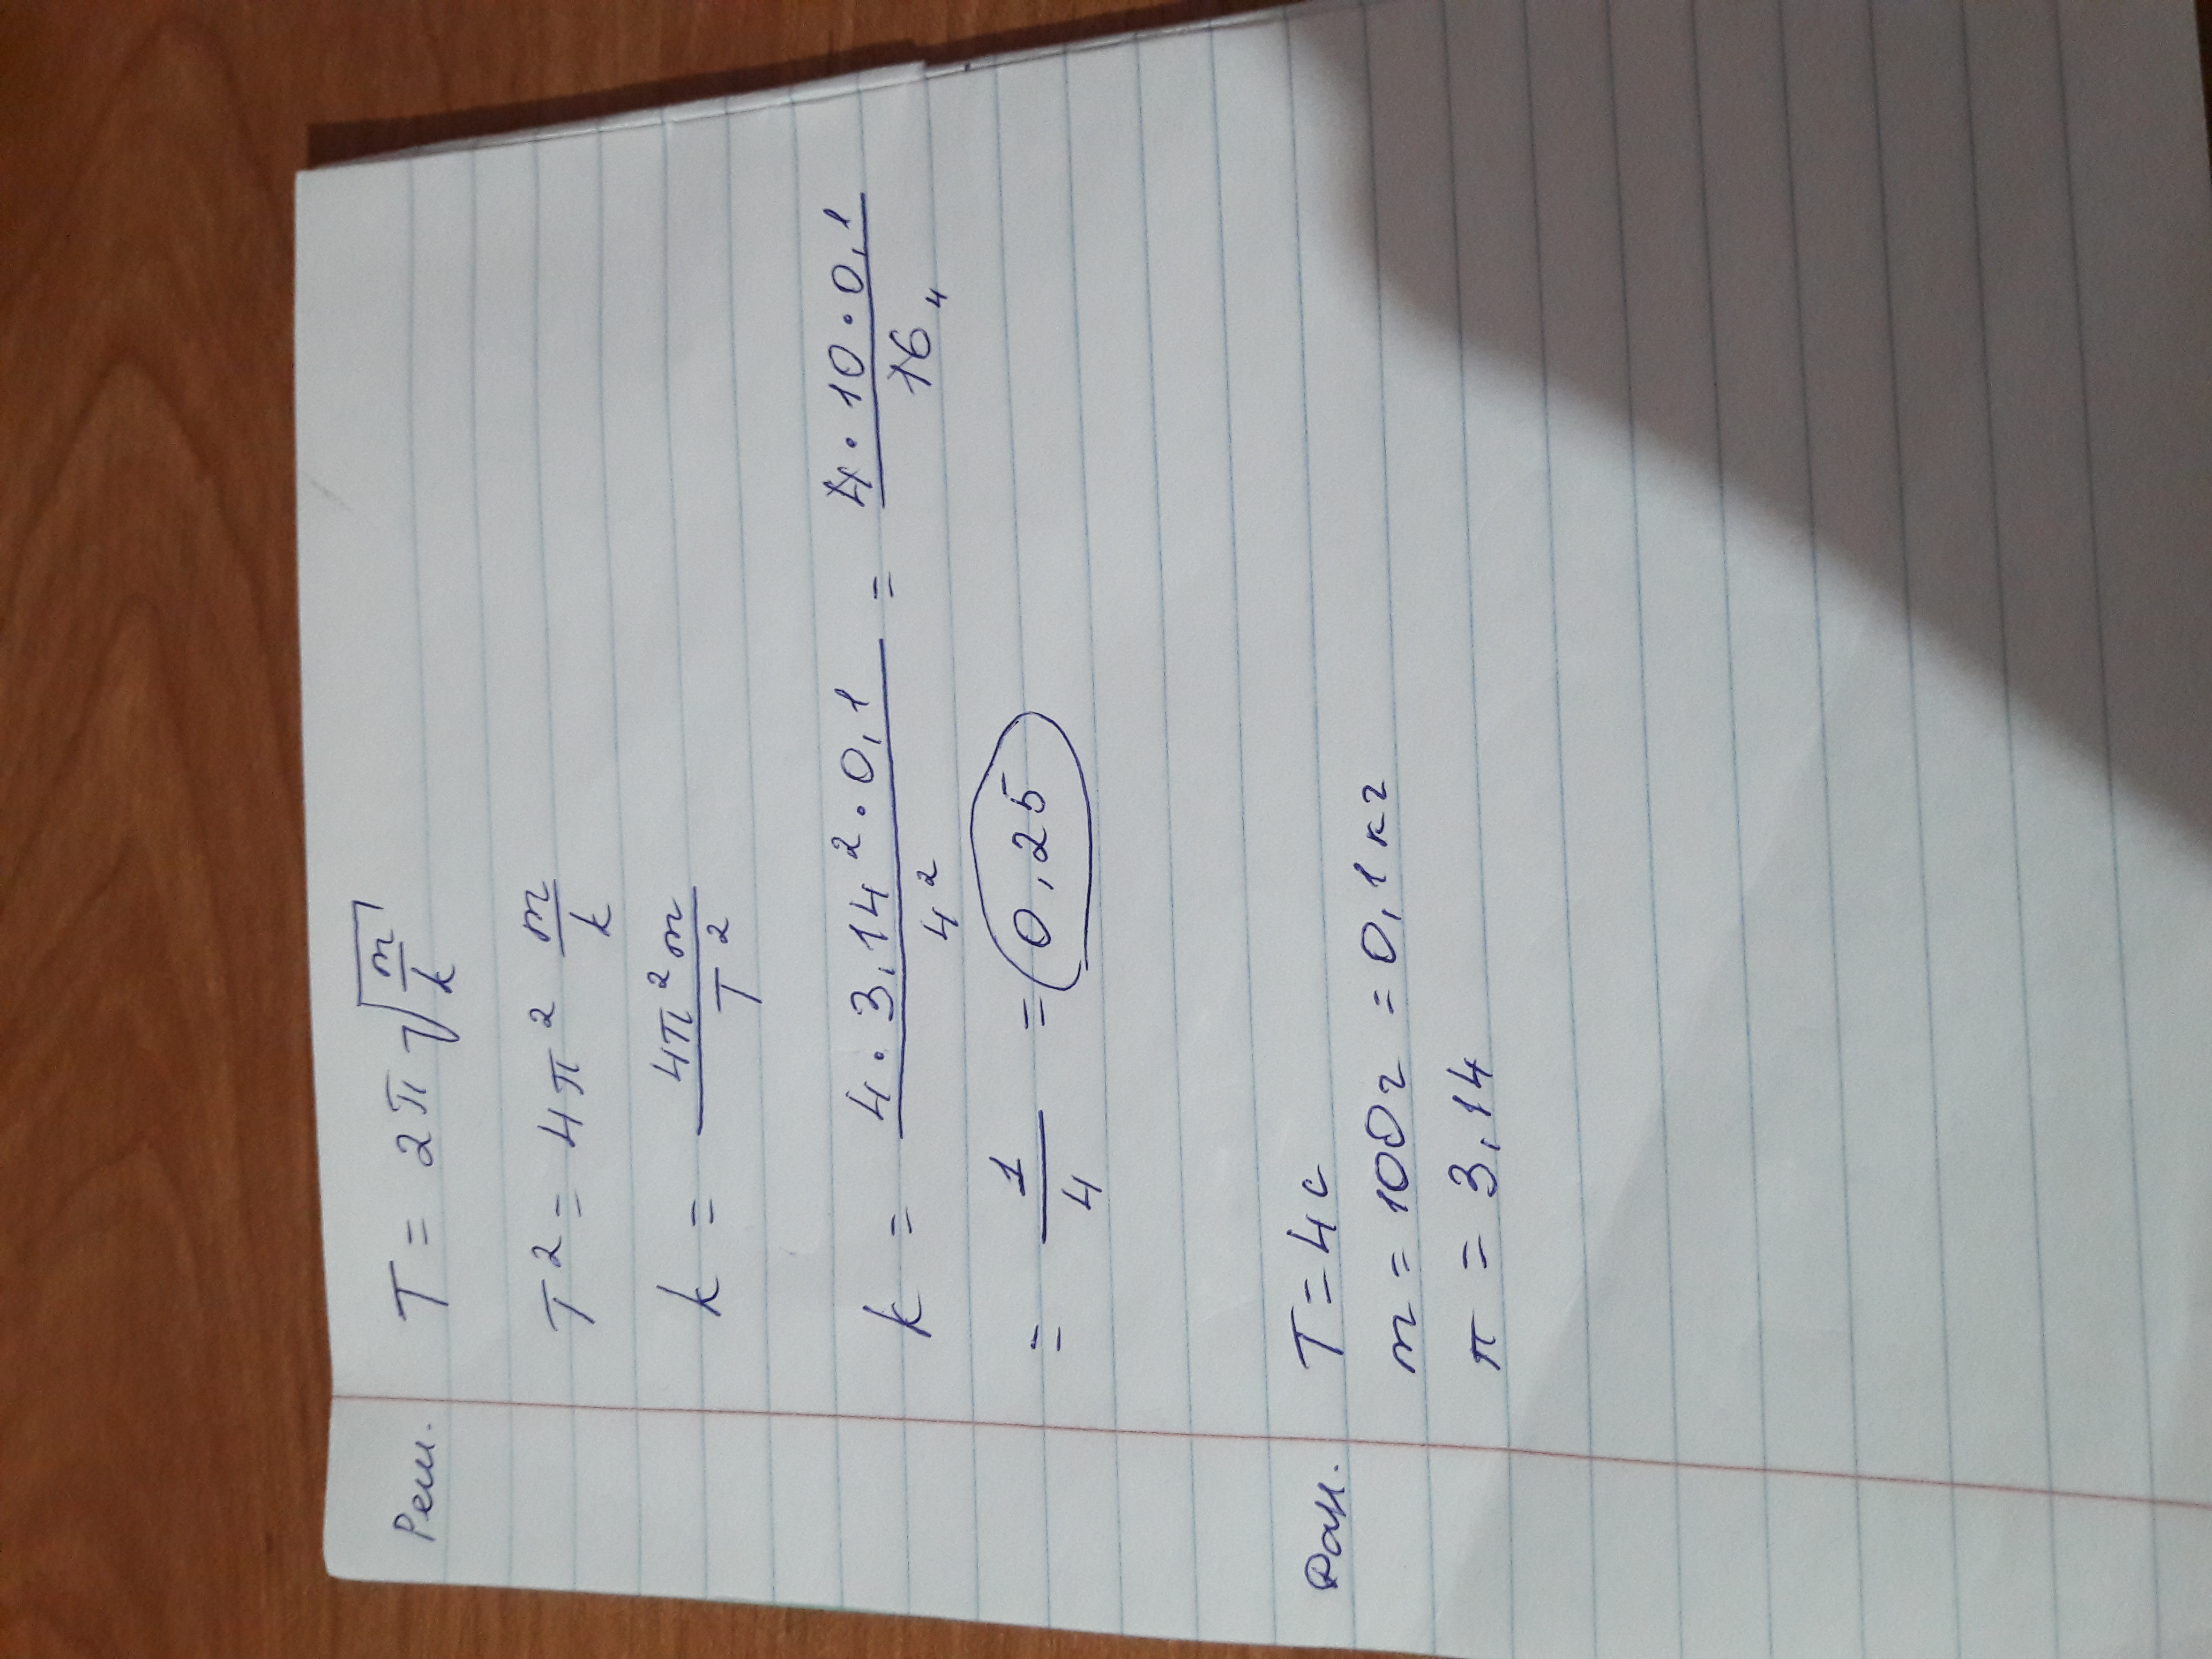 Реш. T = 2π√(m/k)
T² = 4π² m/k
k = 4π²m/T²
k = 4·3,14²·0,1/4² = 4·10·0,1/16 4
= 1/4 = 0,25
T = 4с
m = 100г = 0,1кг
π = 3,14